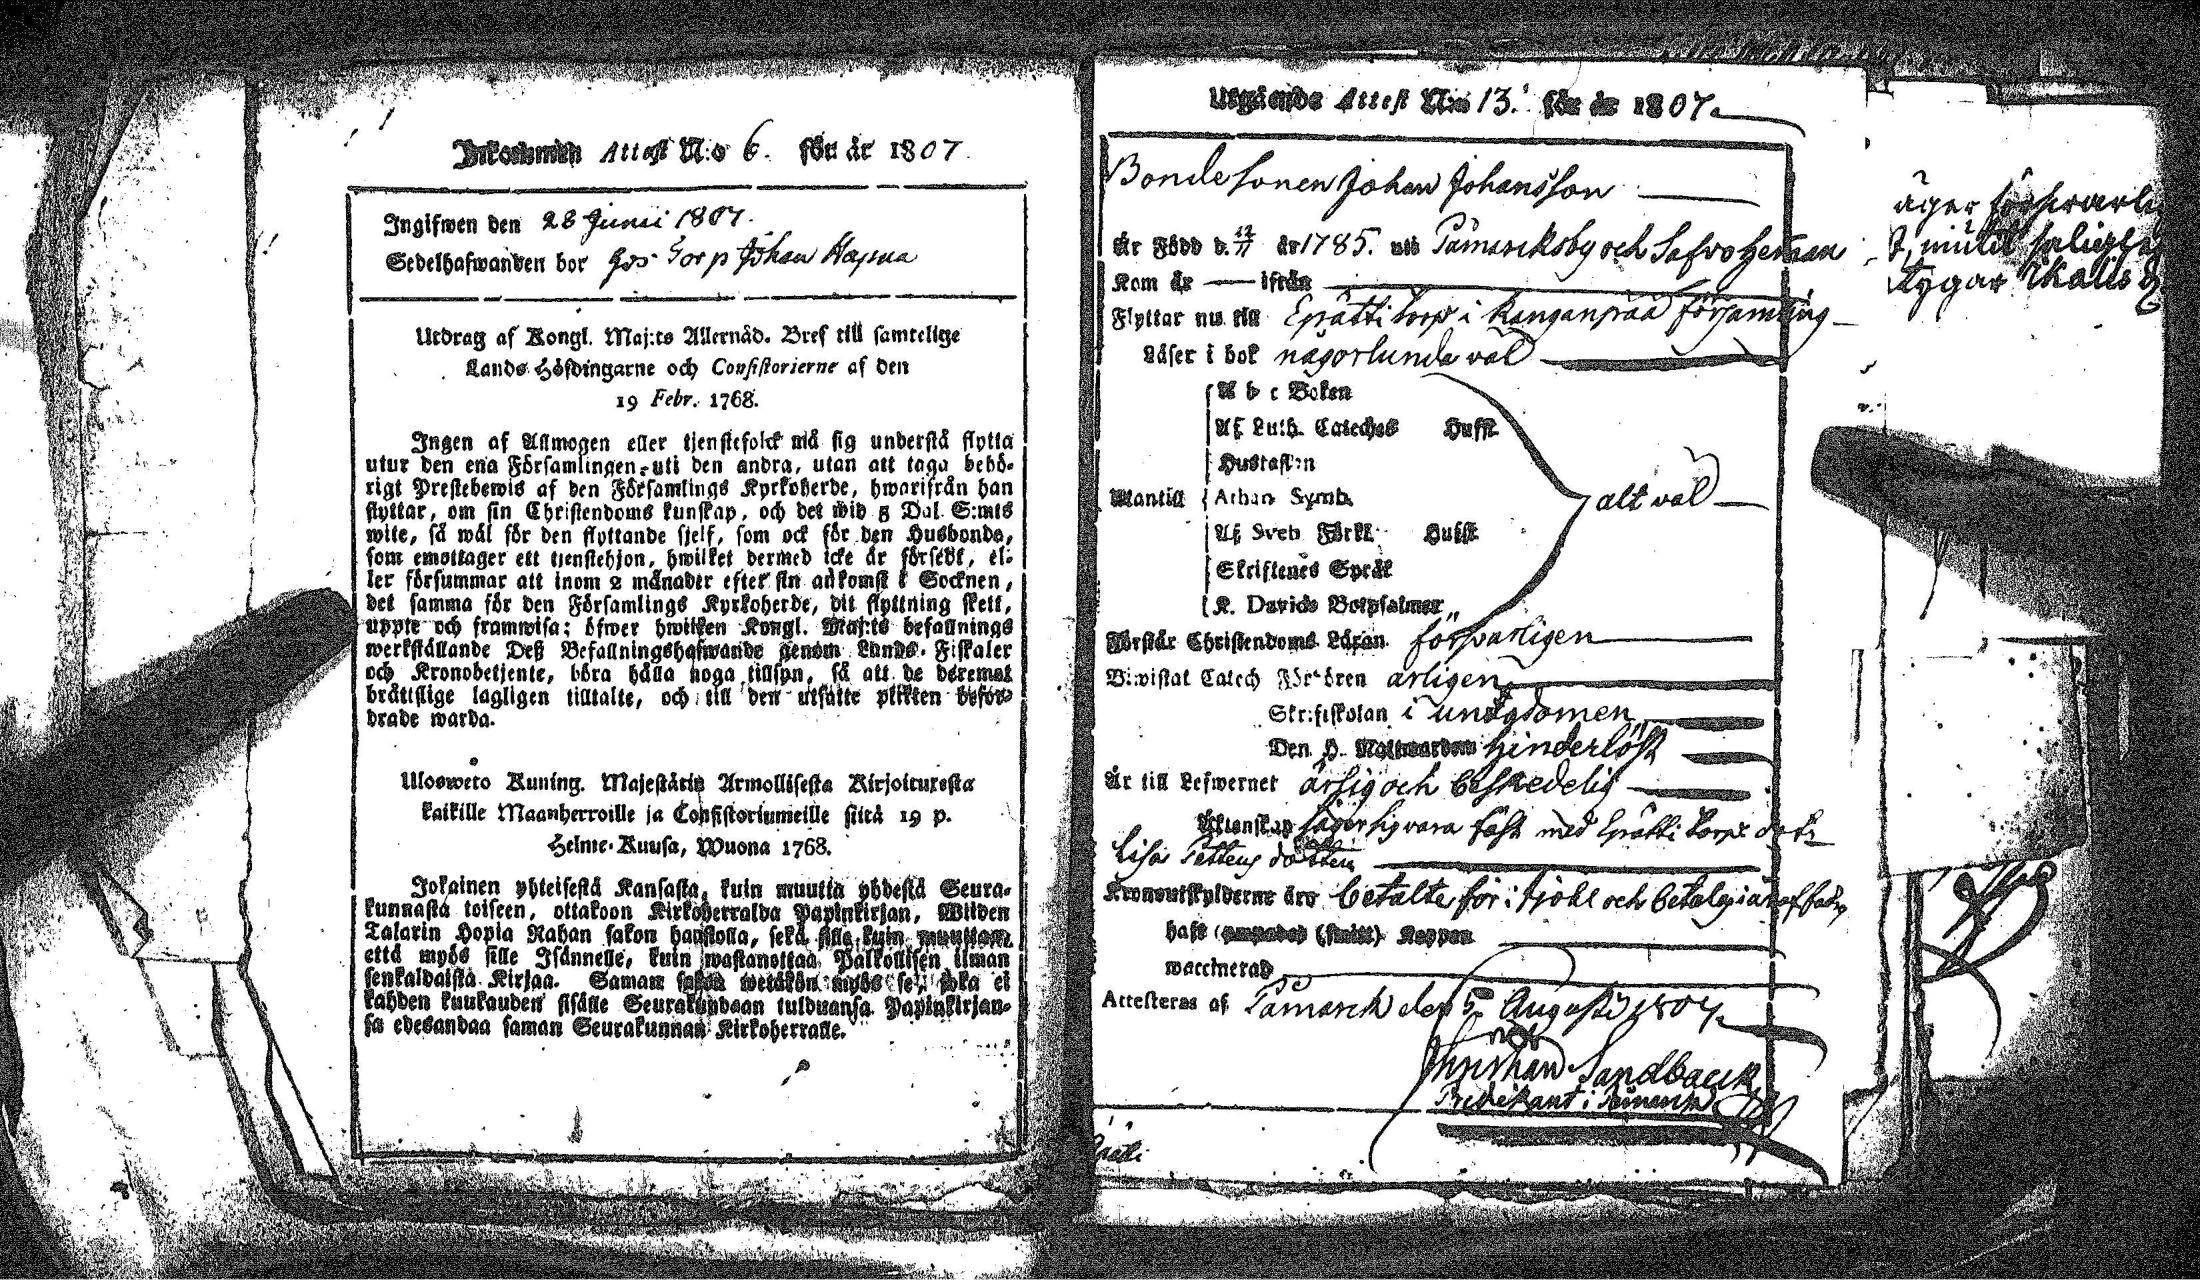 Inkommen Attest N:o 6. för år 1807.
Ingifwen den 28 Junii 1807.
Sedelhafwanden bor hos Torp Johan Hapua
Utdrag af Kongl. Maj:ts Allernåd. Bref till samtelige
Lands Höfdingarne och Consistorierne af den
19 Febr. 1768.
Ingen af Allmogen eller tjenstefolck må sig understå flytta
utur den ena Församlingen uti den andra, utan att taga behö-
rigt Prestebewis af den Församlings Kyrkoherde, hwarifrån han
flyttar, om sin Christendoms kunskap, och det wid 5 Dal. S:mts
wite, så wäl för den flyttande sjelf, som ock för den Husbonde,
som emottager ett tjenstehjon, hwilket dermed icke är försedt, el-
ler försummar att inom 2 månader efter sin ankomst i Socknen,
det samma för den Församlings Kyrkoherde, dit flyttning skett,
uppte och framwisa; öfwer hwilken Kongl. Maj:ts befallnings
werkställande Deß Befallningshafwande genom Lands-Fiskaler
och Kronobetjente, böra hålla noga tillsyn, så att de deremot
bråttslige lagligen tilltalte, och till den utsatte plikten befor-
drade warda.
Ulosweto Kuning. Majestätin Armollisesta Kirjoituxesta
kaikille Maanherroille ja Consistoriumeille siitä 19 p.
Helme-Kuusa, Wuona 1768.
Jokainen yhteisestä Kansasta, kuin muutta yhdestä Seura-
kunnasta toiseen, ottakoon Kirkoherralda Papinkirjan, Wiiden
Talarin Hopia Rahan sakon haastolla, sekä sille kuin muuttaa
että myös sille Isännelle, kuin wastanottaa Palkollisen ilman
senkaldaista Kirjaa. Saman sakon wetäkön myös se, joka ei
kahden kuukauden sisälle Seurakundaan tulduansa Papinkirjan-
sa edesandaa saman Seurakunnan Kirkoherralle.
Utgående Attest N:o 13. för år 1807.
Bondesonen Johan Johansson
Är Född d. 12/11 år 1785. uti Tamarcksby och Safvo hemman
Kom år — ifrån
Flyttar nu till Erätti torp i Kanganpää församling
Läser i bok någorlunda väl
A b c Boken
Af Luth. Cateches Hufst.
Hustaflan
Utantill Athan. Symb.
Af Sveb. Förkl. Hufst.
Skriftenes Språk
K. Davids Botpsalmer
alt väl
Förstår Christendoms Läran försvarligen
Bewistat Catech Förhören årligen
Skriftskolan i ungdomen
Den H. Nattwarden hinderlöst
Är till Lefwernet ärlig och beskedelig
Äktenskap säger sig vara fäst med Erätti torps dott.
Lisa Pettersdotter
Kronoutskylderne äro betalte för i fjohl och betalas i år af fadren
haft (ympade) (smitt) Koppor
waccinerad
Attesteras af Tamarck den 5 Augusti 1807.
Christian Sandbacck
Predikant i Tamarck
Erätti
äger försvarlig